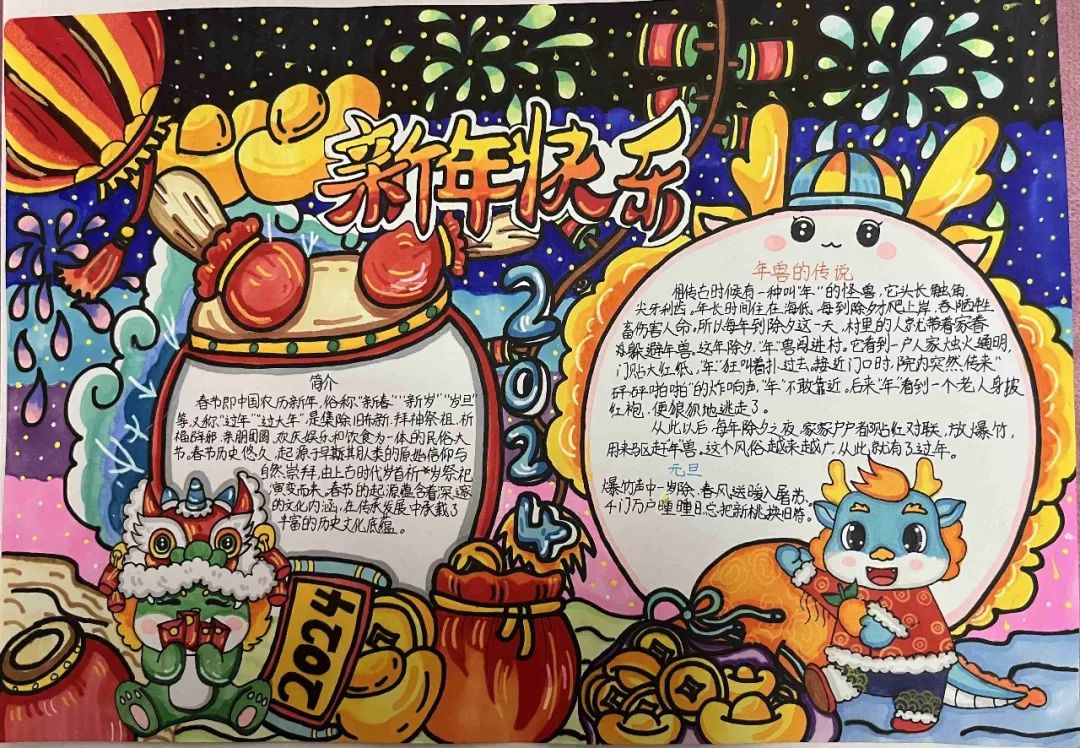 新年快乐
2024
简介
春节即中国农历新年,俗称"新春""新岁""岁旦"
等,又称"过年""过大年",是集除旧布新、拜神祭祖、祈
福辟邪、亲朋团圆、欢庆娱乐和饮食为一体的民俗大
节。春节历史悠久,起源于早期人类的原始信仰与
自然崇拜,由上古时代岁首祈岁祭祀
演变而来。春节的起源蕴含着深邃
的文化内涵,在传承发展中承载了
丰富的历史文化底蕴。
年兽的传说
相传古时候有一种叫"年"的怪兽,它头长触角,
尖牙利齿。年长时间住在海低,每到除夕才爬上岸,吞食牲
畜伤害人命。所以每年到除夕这一天,村里的人就带着家眷
躲避年兽。这年除夕,"年"兽闯进村。它看到一户人家烛火通明,
门贴大红纸,"年"狂叫着扑过去,接近门口时,院内突然传来"
砰砰啪啪"的炸响声,"年"不敢靠近。后来"年"看到一个老人身披
红袍,便狼狈地逃走了。
从此以后,每年除夕之夜,家家户户都贴红对联,放爆竹,
用来驱赶"年"兽。这个风俗越来越广,从此就有了过年。
元旦
爆竹声中一岁除,春风送暖入屠苏。
千门万户曈曈日,总把新桃换旧符。
2024